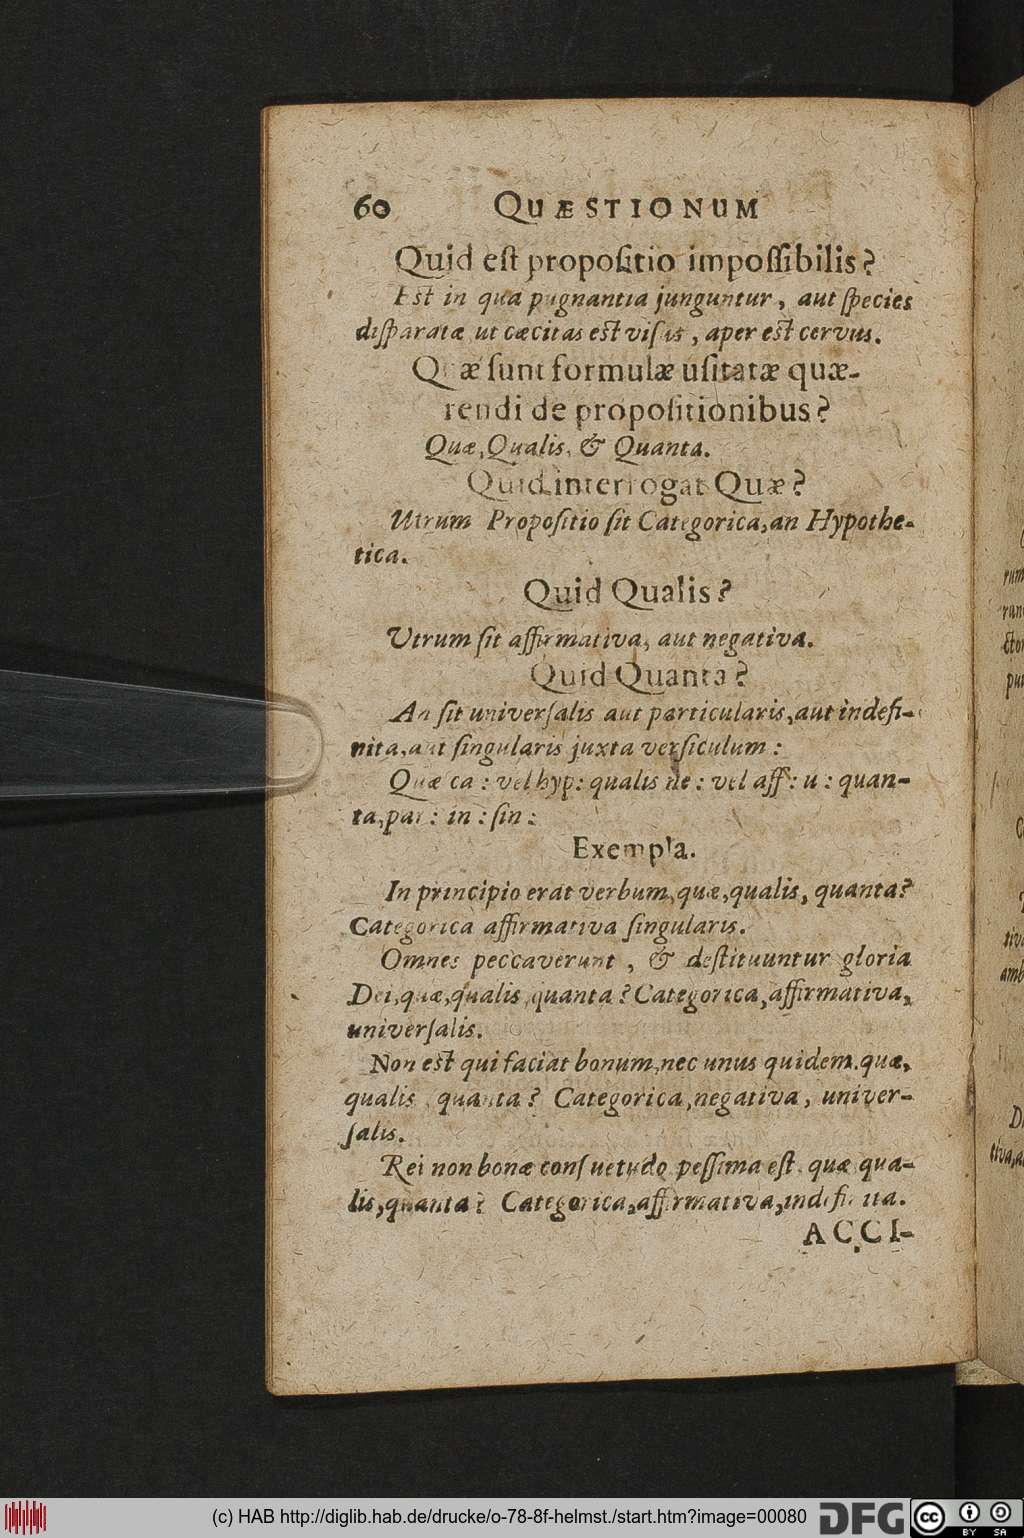 60 QUÆSTIONUM
Quid eſt propoſitio impoſſibilis?
Eſt in qua pugnantia junguntur, aut ſpecies
diſparatæ ut cæcitas eſt viſus, aper eſt cervus.
Quæ ſunt formulæ uſitatæ quæ-
rendi de propoſitionibus?
Quæ, Qualis, & Quanta.
Quid interrogat Quæ?
Utrum Propoſitio ſit Categorica, an Hypothe-
tica.
Quid Qualis?
Utrum ſit affirmativa, aut negativa.
Quid Quanta?
An ſit univerſalis aut particularis, aut indefi-
nita, aut ſingularis juxta verſiculum:
Quæ ca: vel hyp: qualis ne: vel aff: u: quan-
ta, par: in: ſin:
Exempla.
In principio erat verbum, quæ, qualis, quanta?
Categorica affirmativa ſingularis.
Omnes peccaverunt, & deſtituuntur gloria
Dei, quæ, qualis, quanta? Categorica, affirmativa,
univerſalis.
Non eſt qui faciat bonum, nec unus quidem. quæ,
qualis, quanta? Categorica, negativa, univer-
ſalis.
Rei non bonæ conſuetudo peſſima eſt. quæ qua-
lis, quanta? Categorica, affirmativa, indefinita.
ACCI-
(c) HAB http://diglib.hab.de/drucke/o-78-8f-helmst./start.htm?image=00080
DFG
cc BY SA